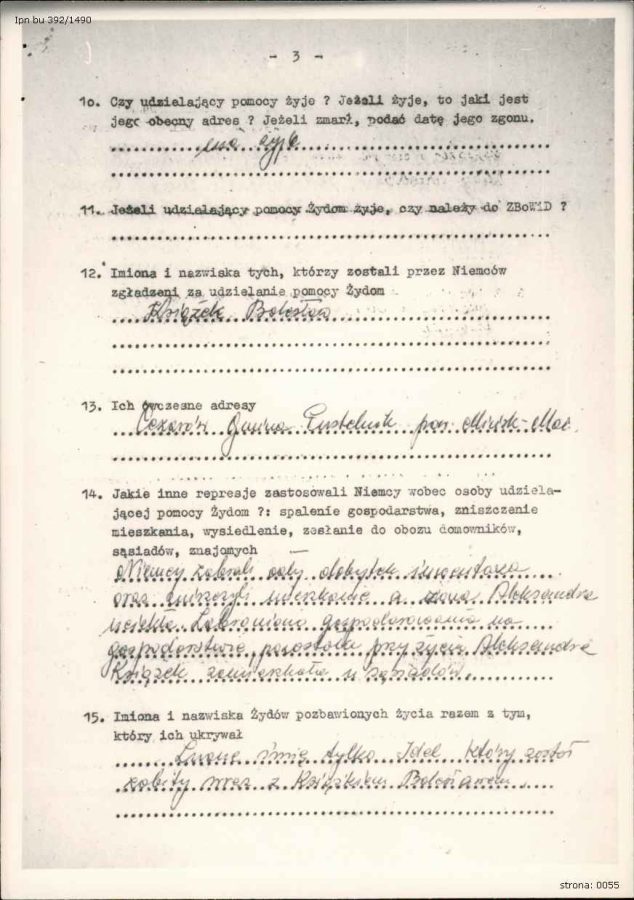 Ipn bu 392/1490
- 3 -
10. Czy udzielający pomocy żyje ? Jeżeli żyje, to jaki jest
jego obecny adres ? Jeżeli zmarł, podać datę jego zgonu.
nie żyje
11. Jeżeli udzialający pomocy Żydom żyje, czy należy do ZBoWiD ?
12. Imiona i nazwiska tych, którzy zostali przez Niemców
zgładzeni za udzielanie pomocy Żydom
Książek Bolesław
13. Ich ówczesne adresy
Cezarów Gmina Pustelnik pow. Mińsk-Maz.
14. Jakie inne represje zastosowali Niemcy wobec osoby udziela-
jącej pomocy Żydom ?: spalenie gospodarstwa, zniszczenie
mieszkania, wysiedlenie, zesłanie do obozu domowników,
sąsiadów, znajomych
Niemcy zabrali cały dobytek inwentarza
oraz zniszczyli mieszkanie a żona Aleksandra
uciekła. Zabroniono gospodarowania na
gospodarstwie, pozostała przy życiu Aleksandra
Książek zamieszkała u sąsiadów.
15. Imiona i nazwiska Żydów pozbawionych życia razem z tym,
który ich ukrywał
Znane imię tylko Idel który został
zabity wraz z Książkiem Bolesławem
strona: 0055